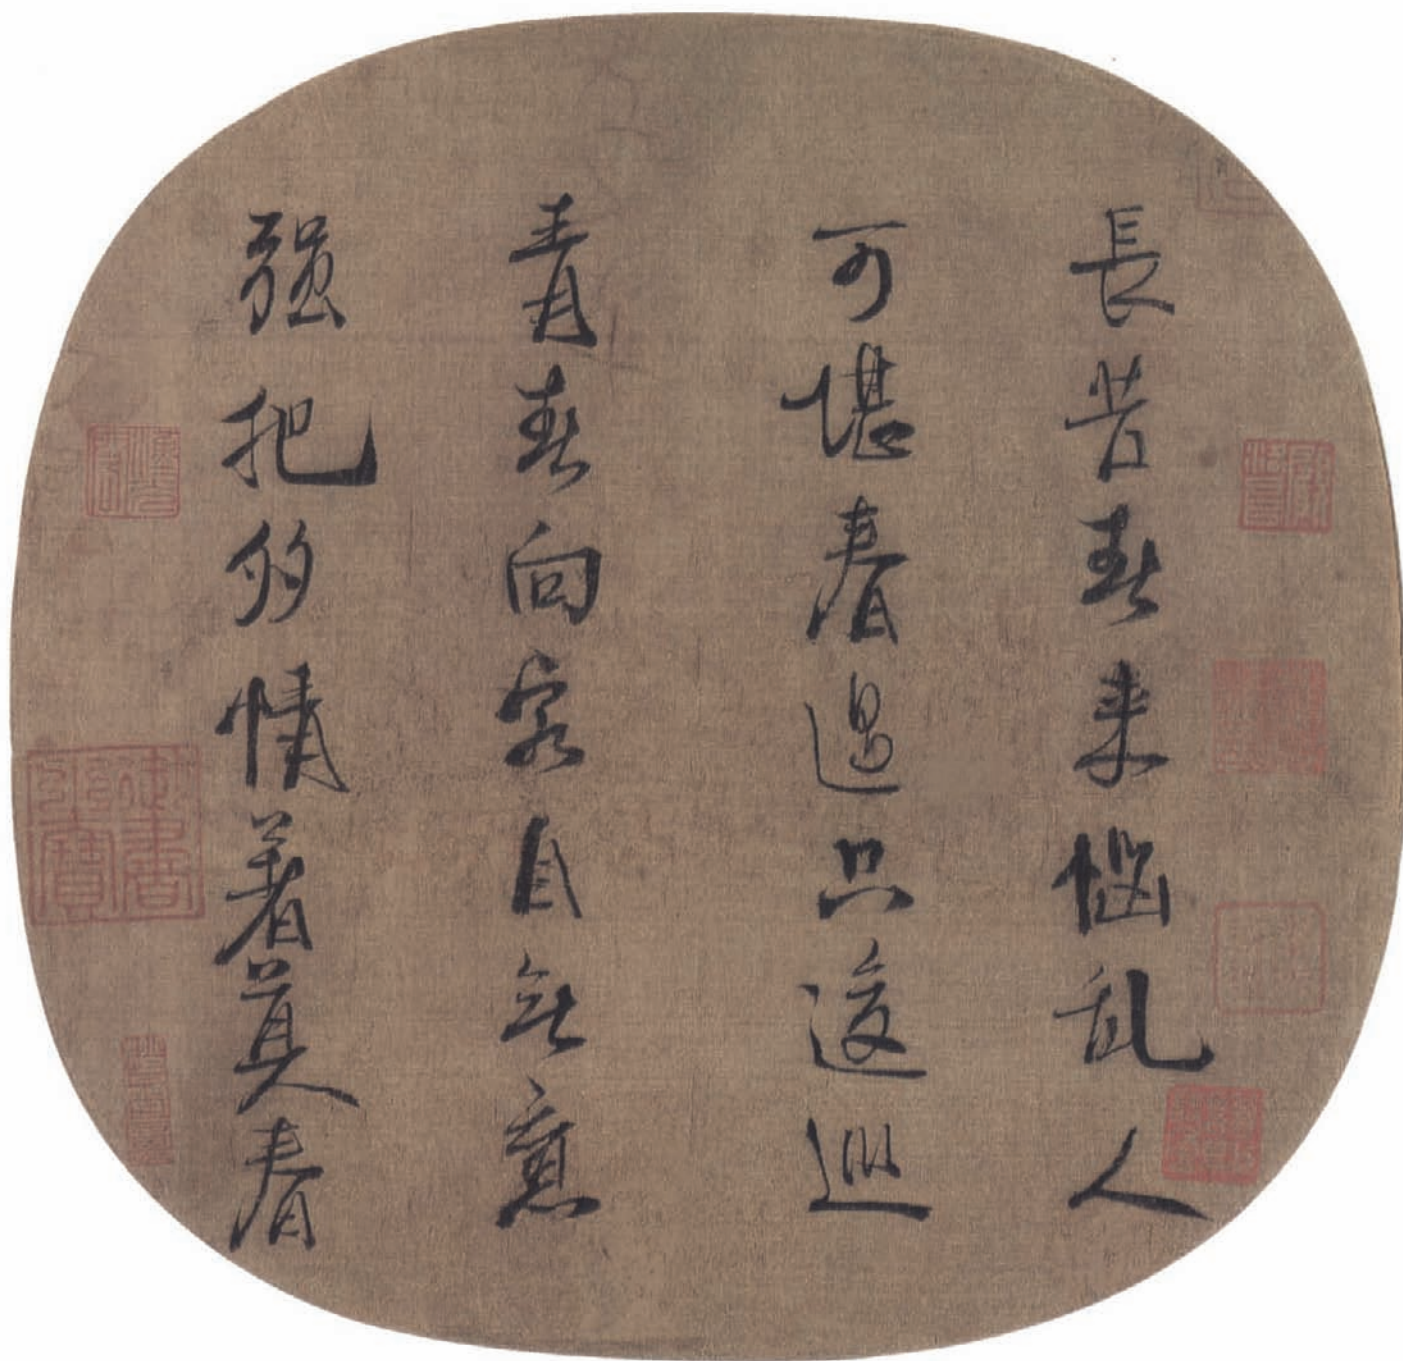 長苦春来惱乱人
可堪春過只逡巡
青春向客自無意
强把多情著莫春